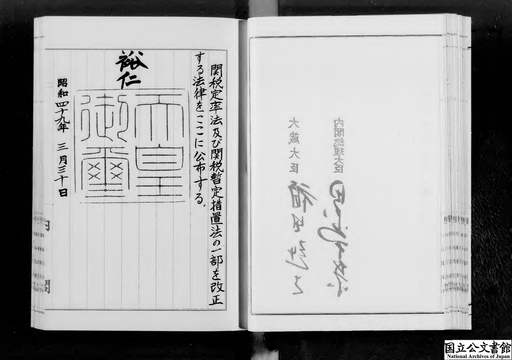 関税定率法及び関税暫定措置法の一部を改正
する法律をここに公布する。
裕仁
天皇
御璽
昭和四十九年 三月三十日
内閣総理大臣
大蔵大臣
国立公文書館
National Archives of Japan